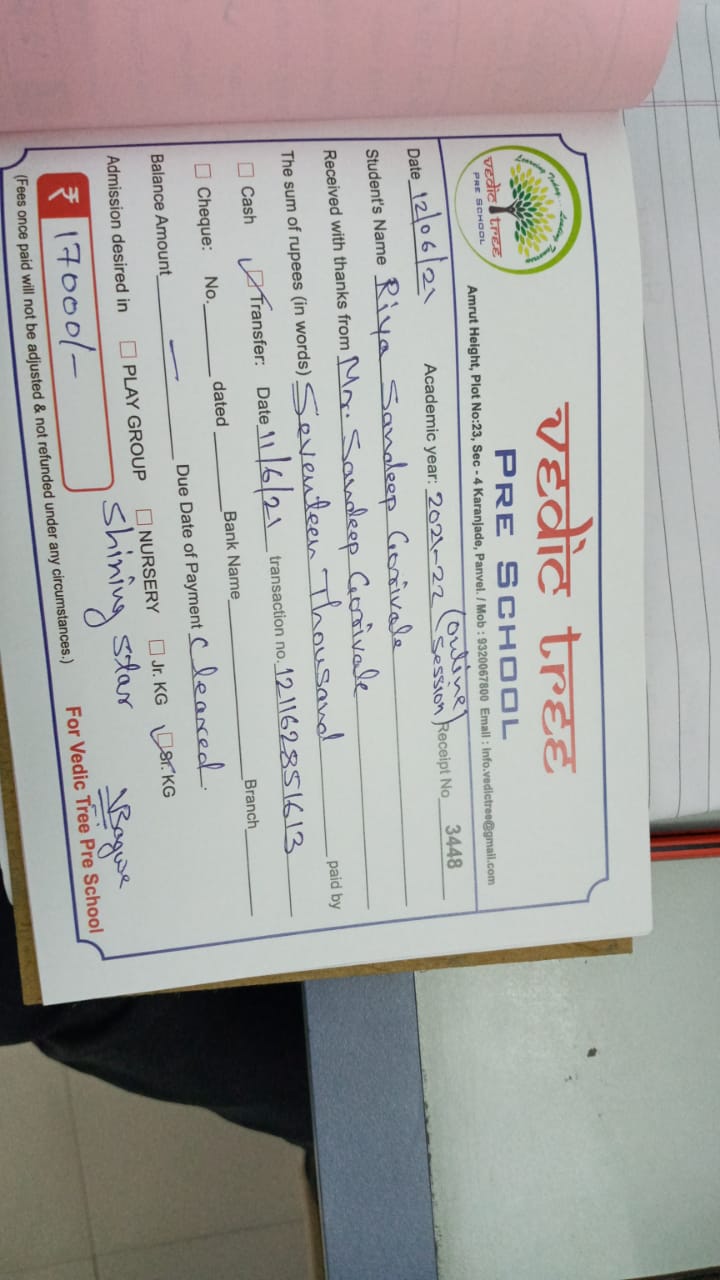 Learning Today... Leading Tomorrow
vedic tree
PRE SCHOOL
vedic tree
PRE SCHOOL
Amrut Height, Plot No:23, Sec - 4 Karanjade, Panvel. / Mob : 9320067800 Email : info.vedictree@gmail.com
Date 12/06/21 Academic year: 2021-22 (Online Session) Receipt No 3448
Student's Name Riya Sandeep Gorivale
Received with thanks from Mr. Sandeep Gorivale paid by
The sum of rupees (in words) Seventeen Thousand
Cash Transfer: Date 11/6/21 transaction no. 121162851613
Cheque: No. dated Bank Name Branch
Balance Amount — Due Date of Payment Cleared.
Admission desired in PLAY GROUP NURSERY Jr. KG Sr. KG
Shining Star
₹ 17000/-
Bagwe
For Vedic Tree Pre School
(Fees once paid will not be adjusted & not refunded under any circumstances.)